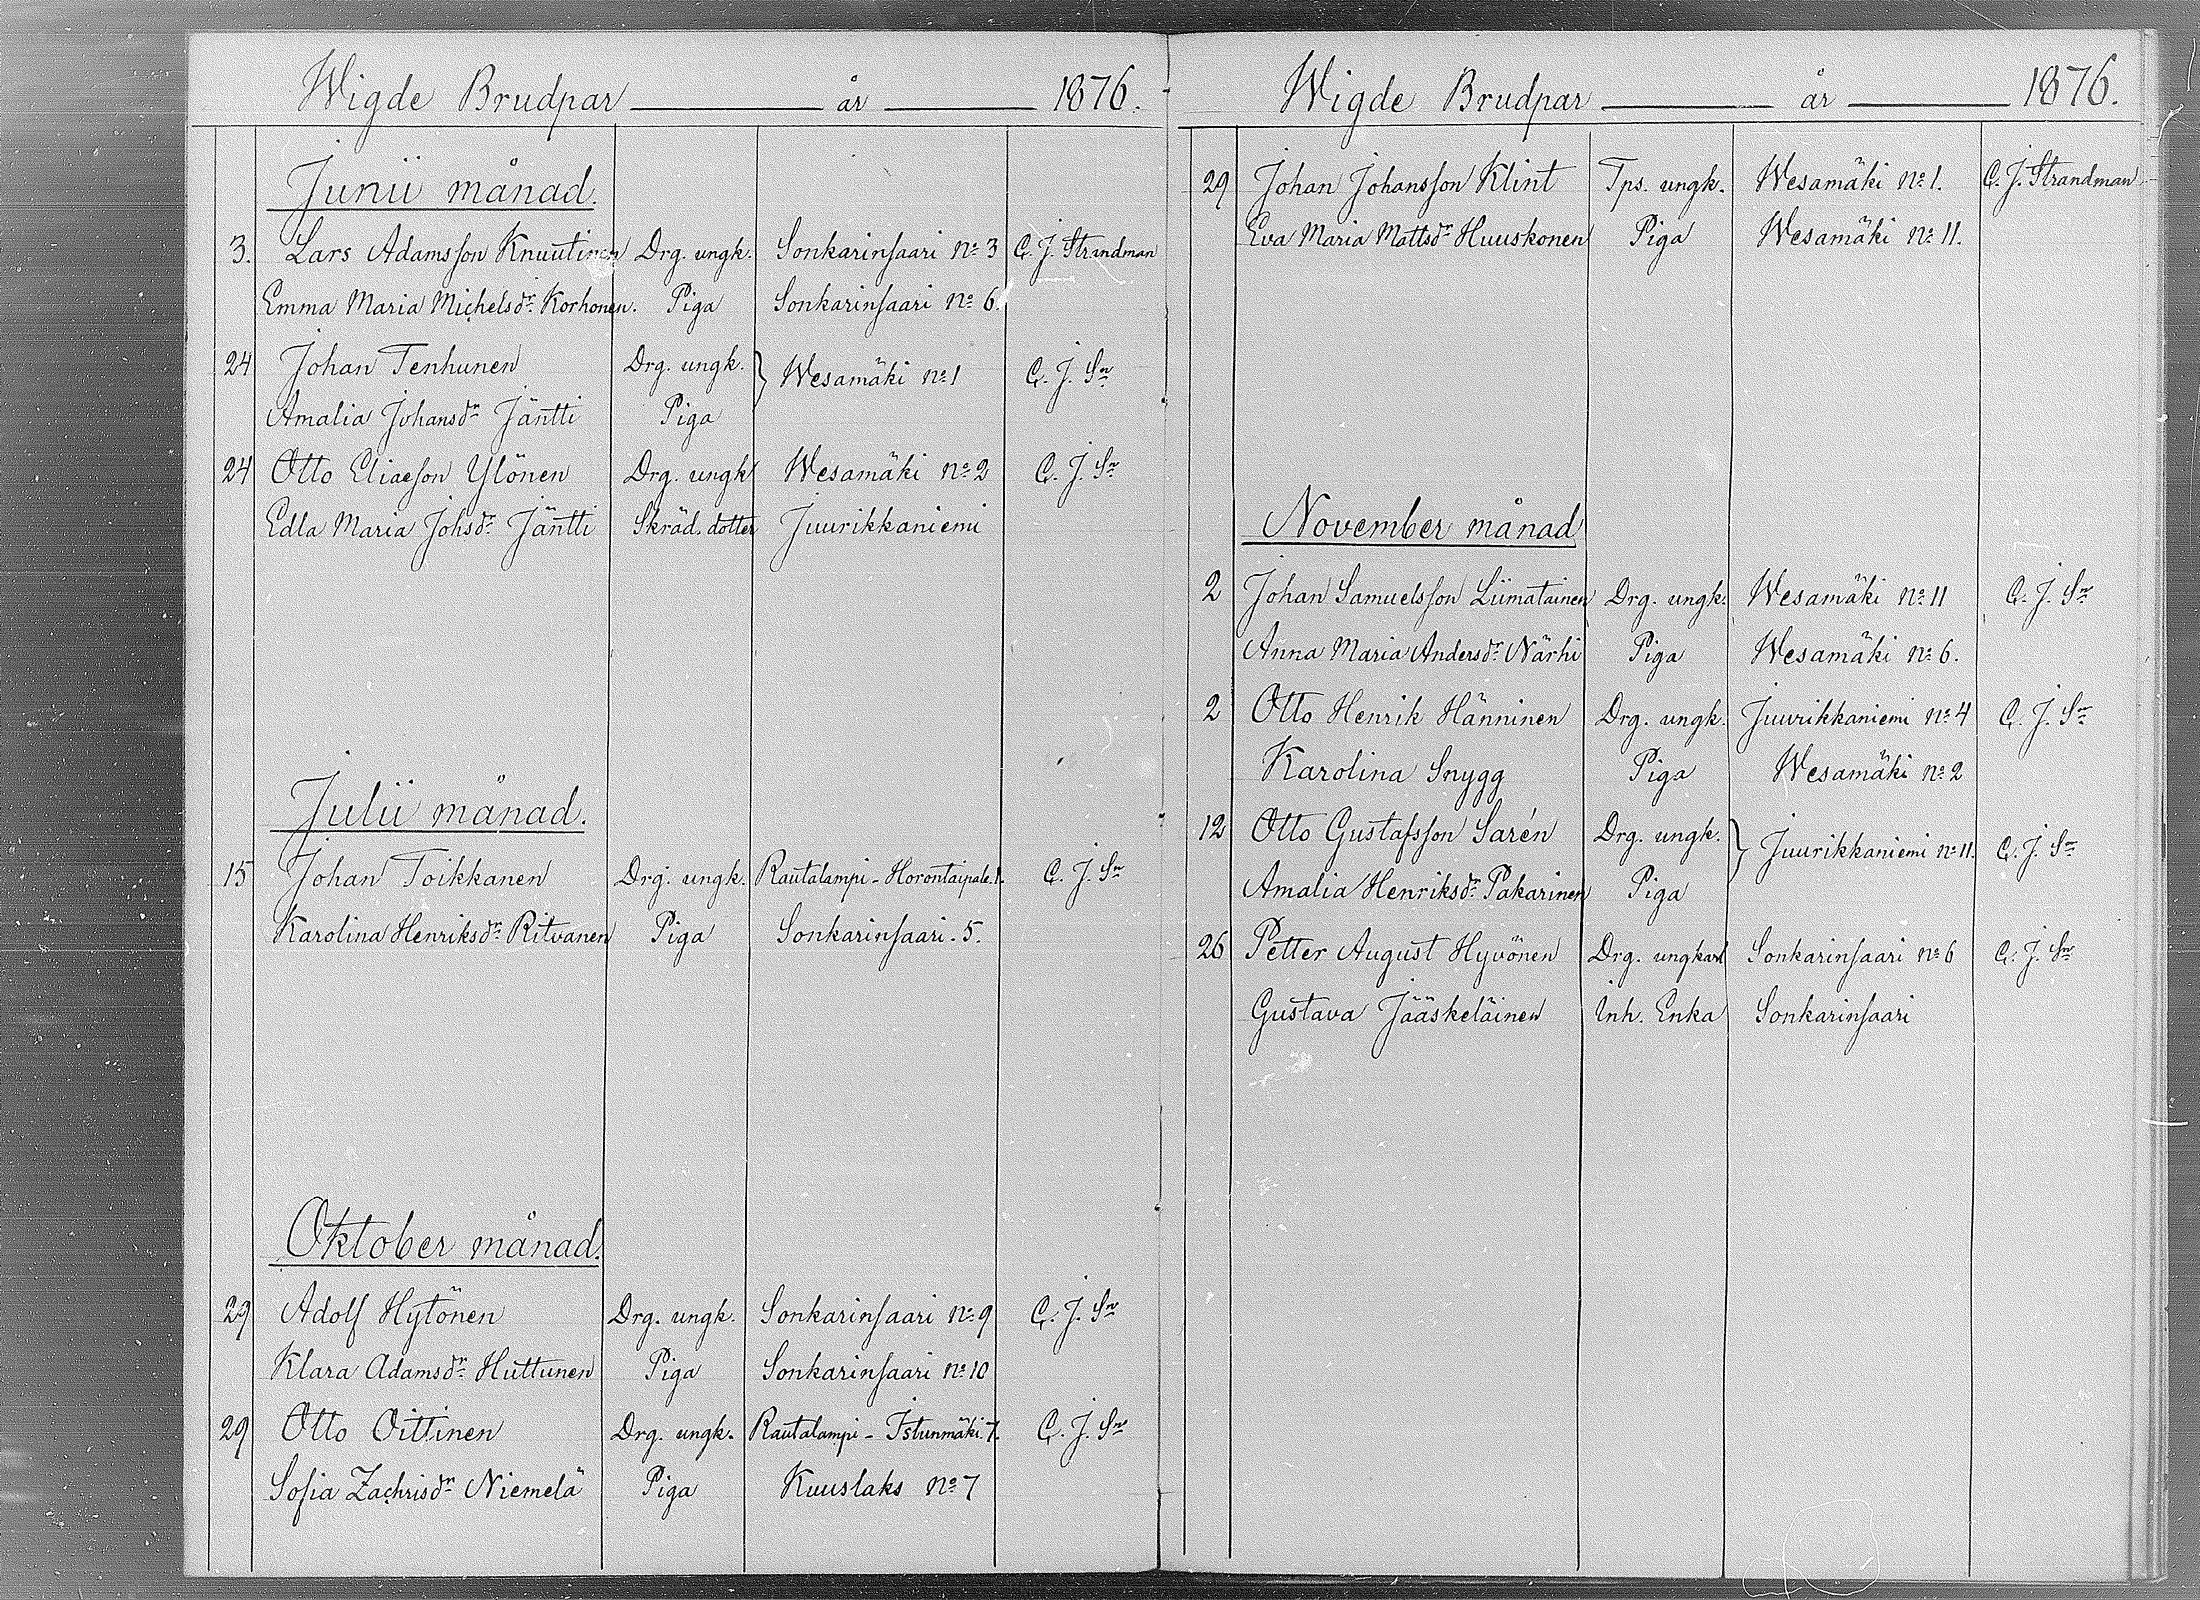 Wigde Brudpar år 1876.
Junii månad.
3. Lars Adamsson Knuutinen Drg. ungk. Sonkarinsaari No 3 C. J. Strandman
Emma Maria Michelsdr Korhonen. Piga Sonkarinsaari No 6.
24 Johan Tenhunen Drg. ungk. } Wesamäki No 1 C. J. Sn
Amalia Johansdr Jäntti Piga
24 Otto Eliaeson Ylönen Drg. ungk Wesamäki No 2 C. J. Sn
Edla Maria Johsdr Jäntti Skräd. dotter Juurikkaniemi
Julii månad.
15 Johan Toikkanen Drg. ungk. Rautalampi - Horontaipale. 1. C. J. Sn
Karolina Henriksdr Ritvanen Piga Sonkarinsaari. 5.
Oktober månad.
29 Adolf Hytönen Drg. ungk. Sonkarinsaari No 9 C. J. Sn
Klara Adamsdr Huttunen Piga Sonkarinsaari No 10
29 Otto Oittinen Drg. ungk. Rautalampi - Istunmäki 7. C. J. Sn
Sofia Zachrisdr Niemelä Piga Kuuslaks No 7
Wigde Brudpar år 1876.
29 Johan Johansson Klint Tps. ungk. Wesamäki No 1. C. J. Strandman
Eva Maria Mattsdr Huuskonen Piga Wesamäki No 11.
November månad
2 Johan Samuelsson Liimatainen Drg. ungk. Wesamäki No 11 C. J. Sn
Anna Maria Andersdr Närhi Piga Wesamäki No 6.
2 Otto Henrik Hänninen Drg. ungk. Juurikkaniemi No 4 C. J. Sn
Karolina Snygg Piga Wesamäki No 2
12 Otto Gustafsson Sarén Drg. ungk. } Juurikkaniemi No 11. C. J. Sn
Amalia Henriksdr Pakarinen Piga
26 Petter August Hyvönen Drg. ungkarl Sonkarinsaari No 6 C. J. Sn
Gustava Jääskeläinen Inh. Enka Sonkarinsaari